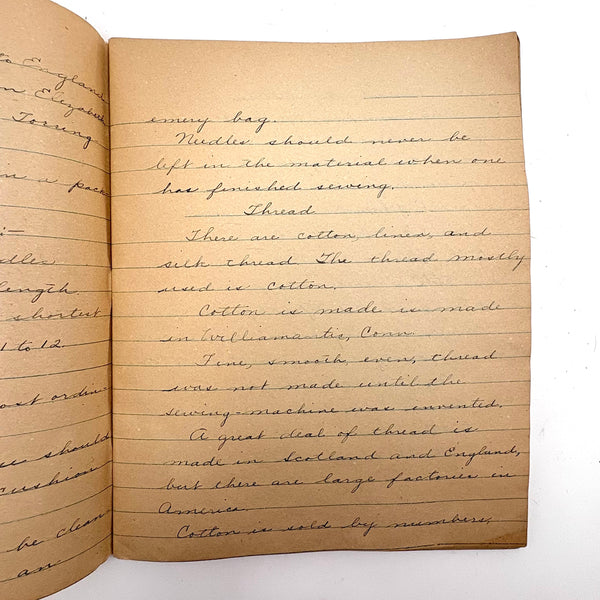 to England
n Elizabeth
Torring
n a pack
dle-
length.
shortest
1 to 12.
ost ordin-
se should
cushion
be clean
an
emery bag.
Needles should never be
left in the material when one
has finished sewing.
Thread
There are cotton, linen, and
silk thread. The thread mostly
used is cotton.
Cotton is made is made
in Williamantic, Conn.
Fine, smooth, even, thread
was not made until the
sewing-machine was invented.
A great deal of thread is
made in Scotland and England,
but there are large factories in
America.
Cotton is sold by numbers,